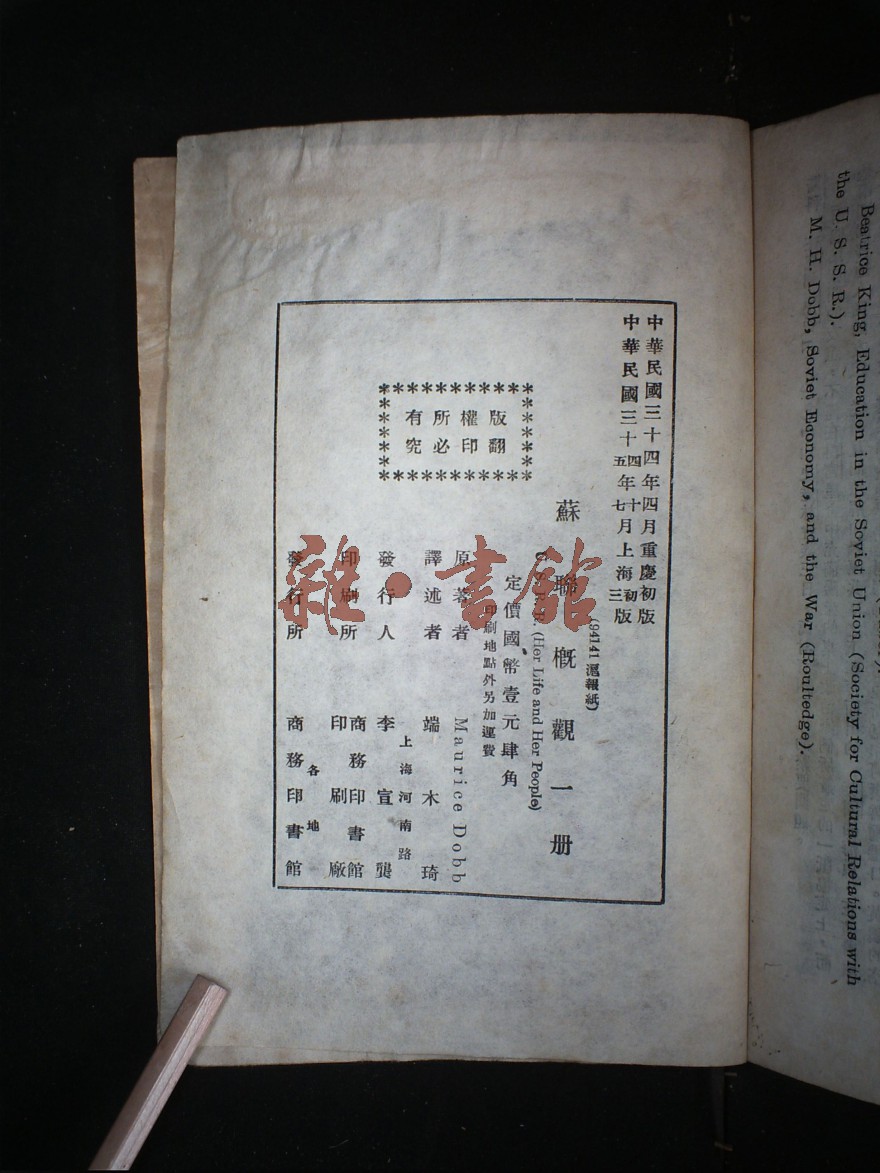 中華民國三十四年四月重慶初版
中華民國三十四年十月上海初版
五 七 三
(94141 滬報紙)
蘇聯概觀一册
U. S. S. R. (Her Life and Her People)
定價國幣壹元肆角
印刷地點外另加運費
版權所有
翻印必究
原著者 Maurice Dobb
譯述者 端木琦
發行人 李宣龔
上海河南路
印刷所 商務印書館
印刷廠
發行所 各地
商務印書館
雜·書館
Beatrice King, Education in the Soviet Union (Society for Cultural Relations with
the U. S. S. R.).
M. H. Dobb, Soviet Economy, and the War (Roultedge).